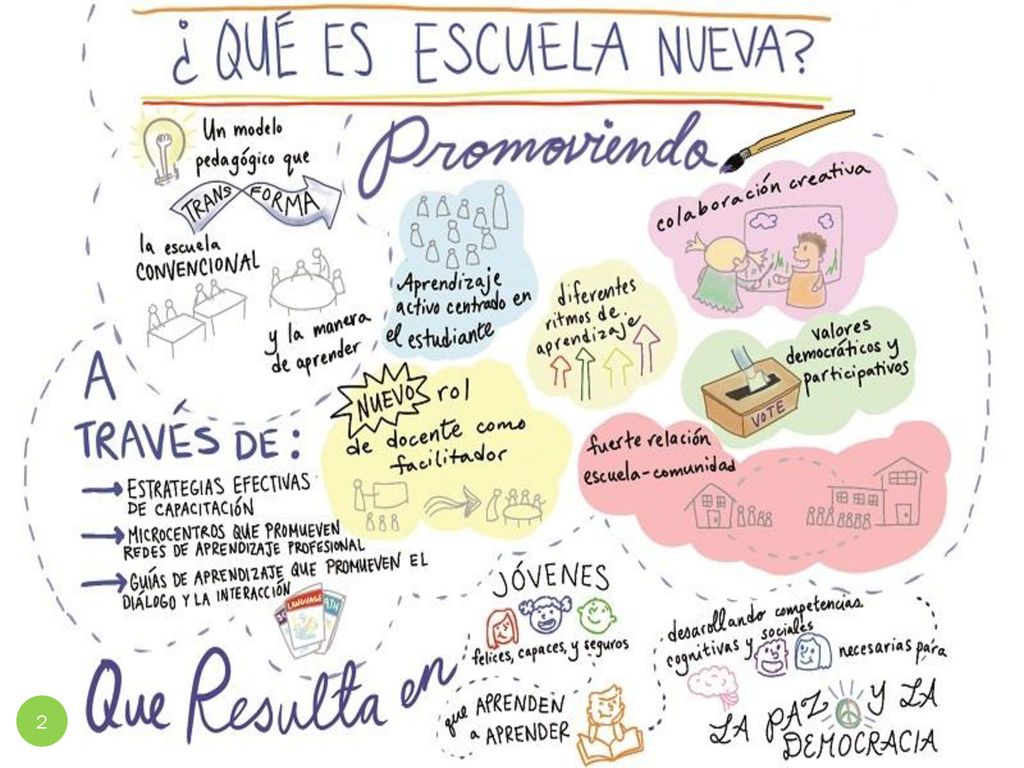 ¿QUÉ ES ESCUELA NUEVA?
Un modelo
pedagógico que
TRANSFORMA
la escuela
CONVENCIONAL
y la manera
de aprender
Promoviendo
Aprendizaje
activo centrado en
el estudiante
diferentes
ritmos de
aprendizaje
colaboración creativa
valores
democráticos y
participativos
VOTE
NUEVO rol
de docente como
facilitador
fuerte relación
escuela-comunidad
A
TRAVÉS DE:
ESTRATEGIAS EFECTIVAS
DE CAPACITACIÓN
MICROCENTROS QUE PROMUEVEN
REDES DE APRENDIZAJE PROFESIONAL
GUÍAS DE APRENDIZAJE QUE PROMUEVEN EL
DIÁLOGO Y LA INTERACCIÓN
LANGUAGE
Que Resulta en
JÓVENES
felices, capaces, y seguros
que APRENDEN
a APRENDER
desarollando competencias
cognitivas y sociales
necesarias para
LA PAZ Y LA
DEMOCRACIA
2